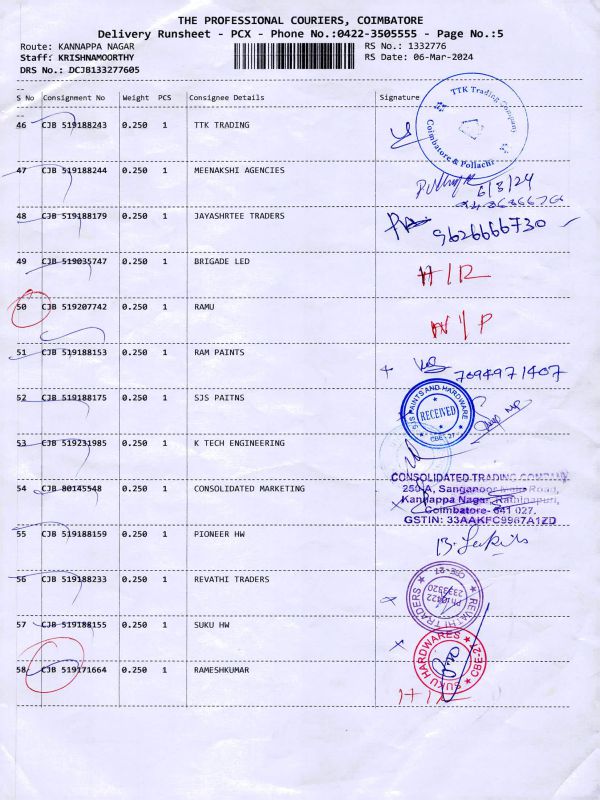 THE PROFESSIONAL COURIERS, COIMBATORE
Delivery Runsheet - PCX - Phone No.:0422-3505555 - Page No.:5
Route: KANNAPPA NAGAR RS No.: 1332776
Staff: KRISHNAMOORTHY RS Date: 06-Mar-2024
DRS No.: DCJB133277605
S No Consignment No Weight PCS Consignee Details Signature
46 CJB 519188243 0.250 1 TTK TRADING
TTK Trading Company
Coimbatore & Pollachi
47 CJB 519188244 0.250 1 MEENAKSHI AGENCIES
6/3/24
48 CJB 519188179 0.250 1 JAYASHRTEE TRADERS
9626666730
49 CJB 519035747 0.250 1 BRIGADE LED
HIR
50 CJB 519207742 0.250 1 RAMU
N/P
51 CJB 519188153 0.250 1 RAM PAINTS
7094971407
52 CJB 519188175 0.250 1 SJS PAITNS
SJS PAINTS AND HARDWARE
RECEIVED
CBE-27
53 CJB 519231985 0.250 1 K TECH ENGINEERING
54 CJB 80145548 0.250 1 CONSOLIDATED MARKETING
CONSOLIDATED TRADING COMPANY
250-A, Sanganoor Road,
Kannappa Nagar, Rathinapuri,
Coimbatore- 641 027.
GSTIN: 33AAKFC9967A1ZD
55 CJB 519188159 0.250 1 PIONEER HW
56 CJB 519188233 0.250 1 REVATHI TRADERS
REVATHI TRADERS
CBE-27
57 CJB 519188155 0.250 1 SUKU HW
SUKU HARDWARES
CBE-27
58 CJB 519171664 0.250 1 RAMESHKUMAR
HIR